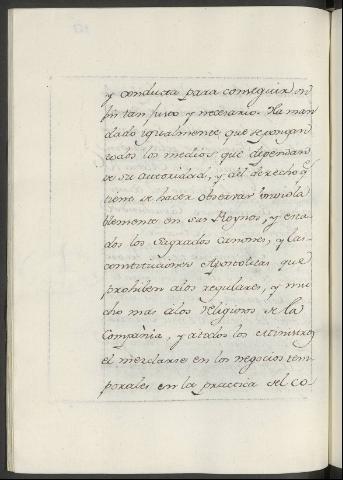 y conducta para conseguir en
fin tan justo y necesario. Ha man
dado igualmente que se pongan
todos los medios, que dependan
de su autoridad, y del derecho q.e
tiene de hacer observar inviola
blemente en sus Reynos, y esta
dos los Sagrados canones, y las
constituciones Apostolicas que
prohiben alos regulares, y mu
cho mas álos religiosos de la
Compañia, y atodos los ministros
el mezclarse en los negocios tem
porales en la practica del co-